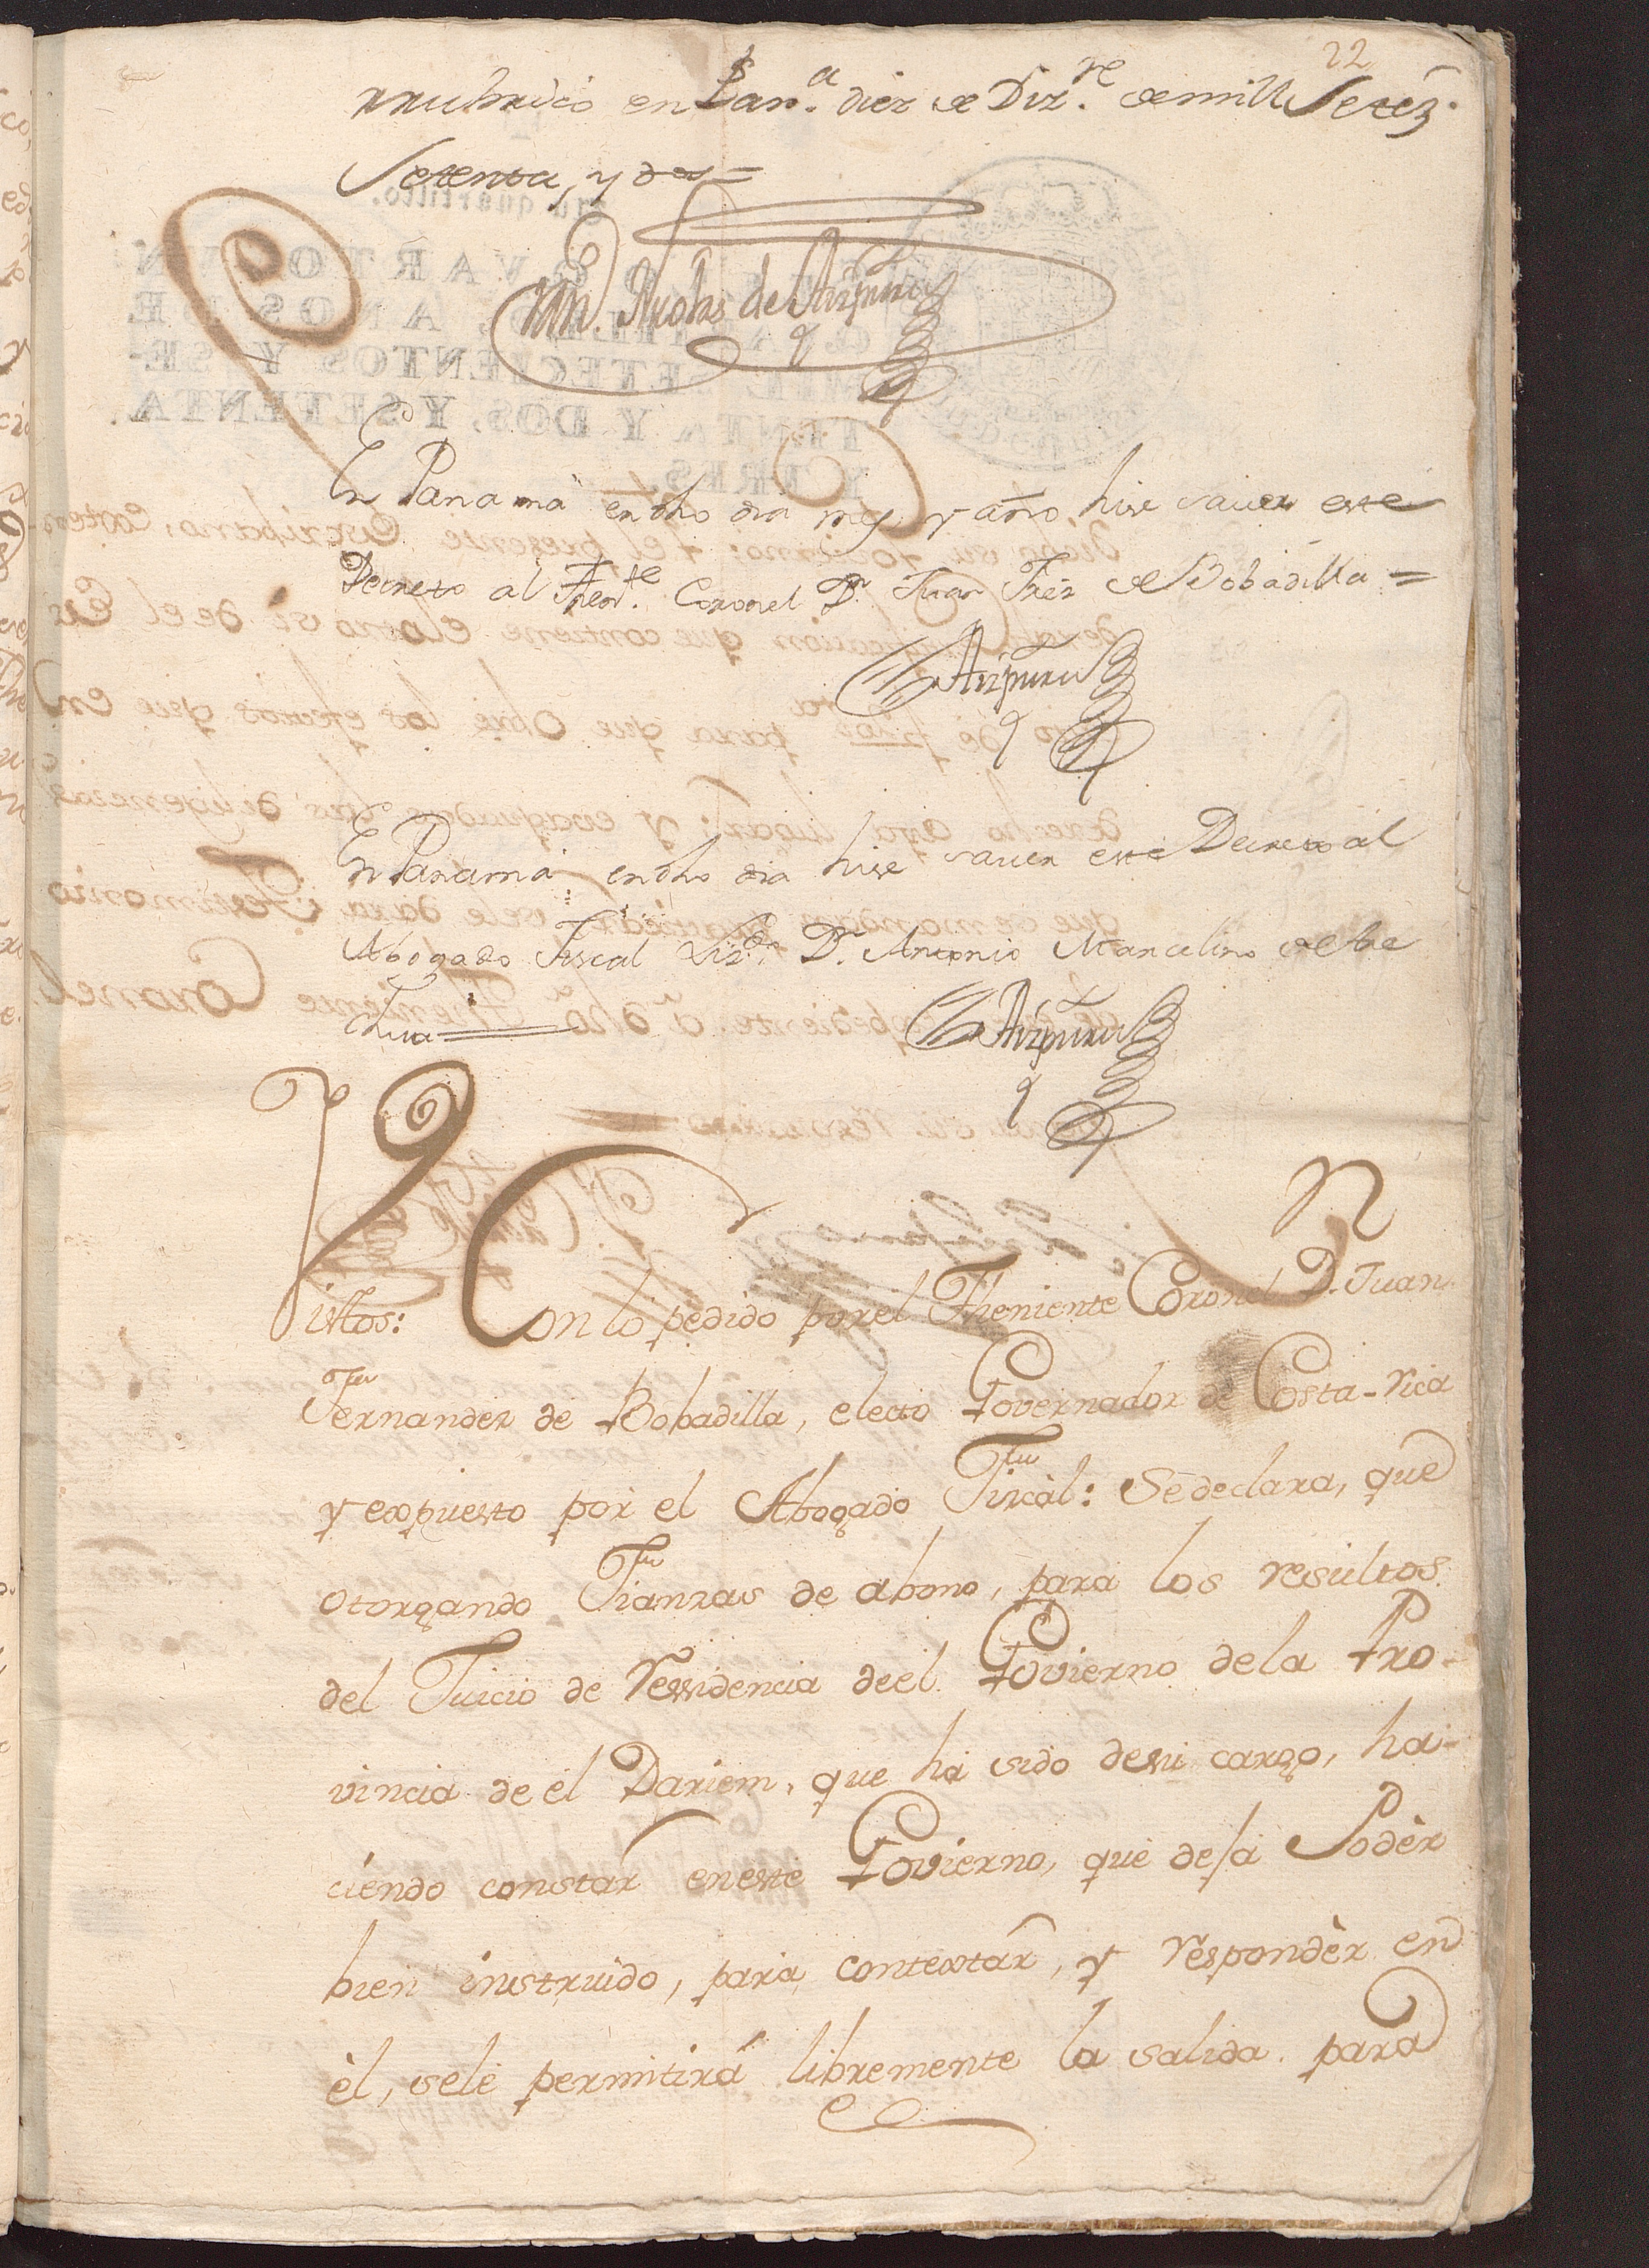 22
rrubricó en Pan.ª diez de Diz.re de mill Setez.
Setenta, y dos =
Mn. Nicolas de Aizpuru
En Panamá en dho dia mes y año hise sauer este
Decreto al Then.te Coronel Dn. Juan Frẽz de Bobadilla =
Aizpuru
En Panamá en dho dia hise sauer este Decreto al
Abogado Fiscal Lizdo. D. Antonio Marcelino de la
Chua
Aizpuru
Vistos: Con lo pedido por el Theniente Coronel Dn. Juan
Fernandez de Bobadilla, electo Governador de Costa-rica
y expuesto por el Abogado Fiscàl: Sè declara, que
otorgando Fianzas de abono, para los resultos
del Juicio de ressidencia de el Govierno de la Pro-
vincia de el Dariem, que ha sido de su cargo, ha-
ciendo constar en este Govierno, que deja Podèr
bien instruido, para contextar, y respondèr en
èl, se le permitirá libremente la salida para